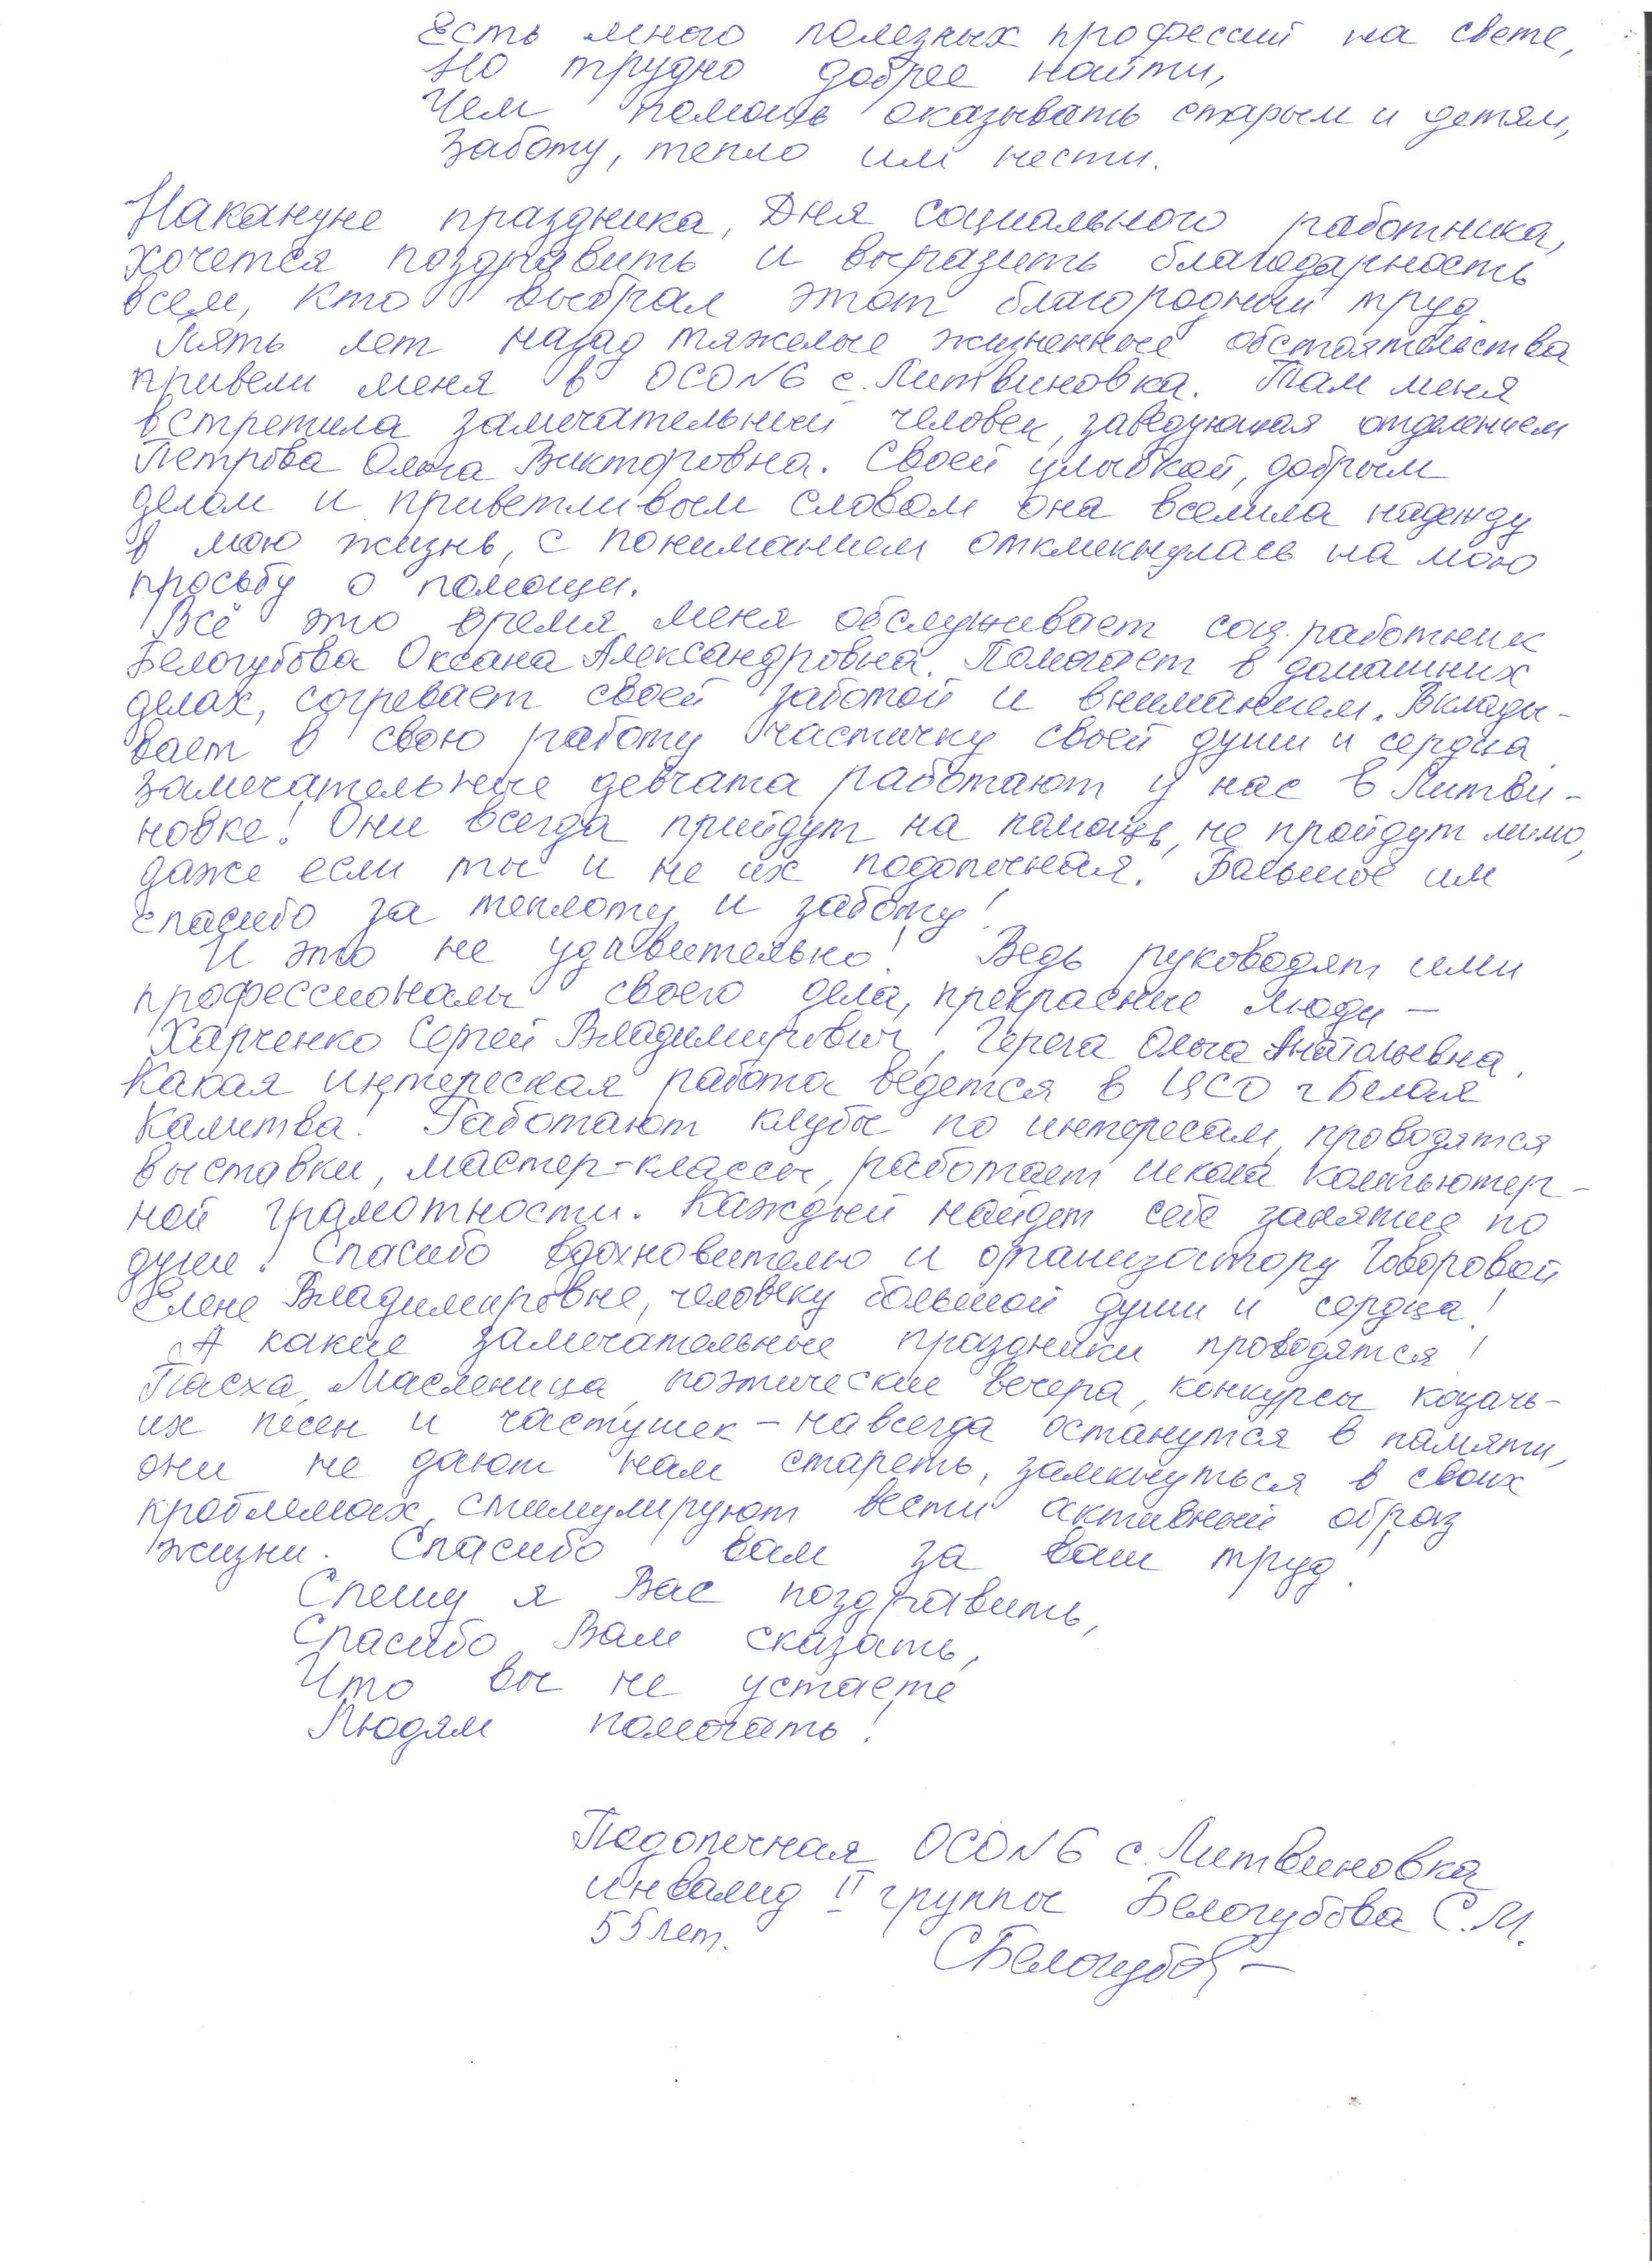 Есть много полезных профессий на свете,
Но трудно добрее найти,
Чем помощь оказывать старым и детям,
Заботу, тепло им нести.
Накануне праздника, Дня социального работника,
хочется поздравить и выразить благодарность
всем, кто выбрал этот благородный труд.
Пять лет назад тяжелые жизненные обстоятельства
привели меня в ОСО№6 с. Литвиновка. Там меня
встретила замечательный человек, заведующая отделением
Петрова Ольга Викторовна. Своей улыбкой, добрым
делом и приветливым словом она вселила надежду
в мою жизнь, с пониманием откликнулась на мою
просьбу о помощи.
Всё это время меня обслуживает соц. работник
Белогубова Оксана Александровна. Помогает в домашних
делах, согревает своей заботой и вниманием. Вклады-
вает в свою работу частичку своей души и сердца.
Замечательные девчата работают у нас в Литви-
новке! Они всегда прийдут на помощь, не пройдут мимо,
даже если ты и не их подопечная. Большое им
спасибо за теплоту и заботу!
И это не удивительно! Ведь руководят ими
профессионалы своего дела, прекрасные люди –
Харченко Сергей Владимирович, Герега Ольга Анатольевна.
Какая интересная работа ведется в ЦСО г Белая
Калитва! Работают клубы по интересам, проводятся
выставки, мастер-классы, работает школа компьютер-
ной грамотности. Каждый найдет себе занятие по
душе. Спасибо вдохновителю и организатору Говоровой
Елене Владимировне, человеку большой души и сердца!
А какие замечательные праздники проводятся!
Пасха, Масленица, поэтические вечера, конкурсы казачь-
их песен и частушек – навсегда останутся в памяти,
они не дают нам стареть, замкнуться в своих
проблемах, стимулируют вести активный образ
жизни. Спасибо вам за ваш труд!
Спешу я Вас поздравить,
Спасибо Вам сказать,
Что вы не устаете
Людям помогать!
Подопечная ОСО№6 с. Литвиновка
инвалид II группы Белогубова С.М.
55 лет.
СБелогубов